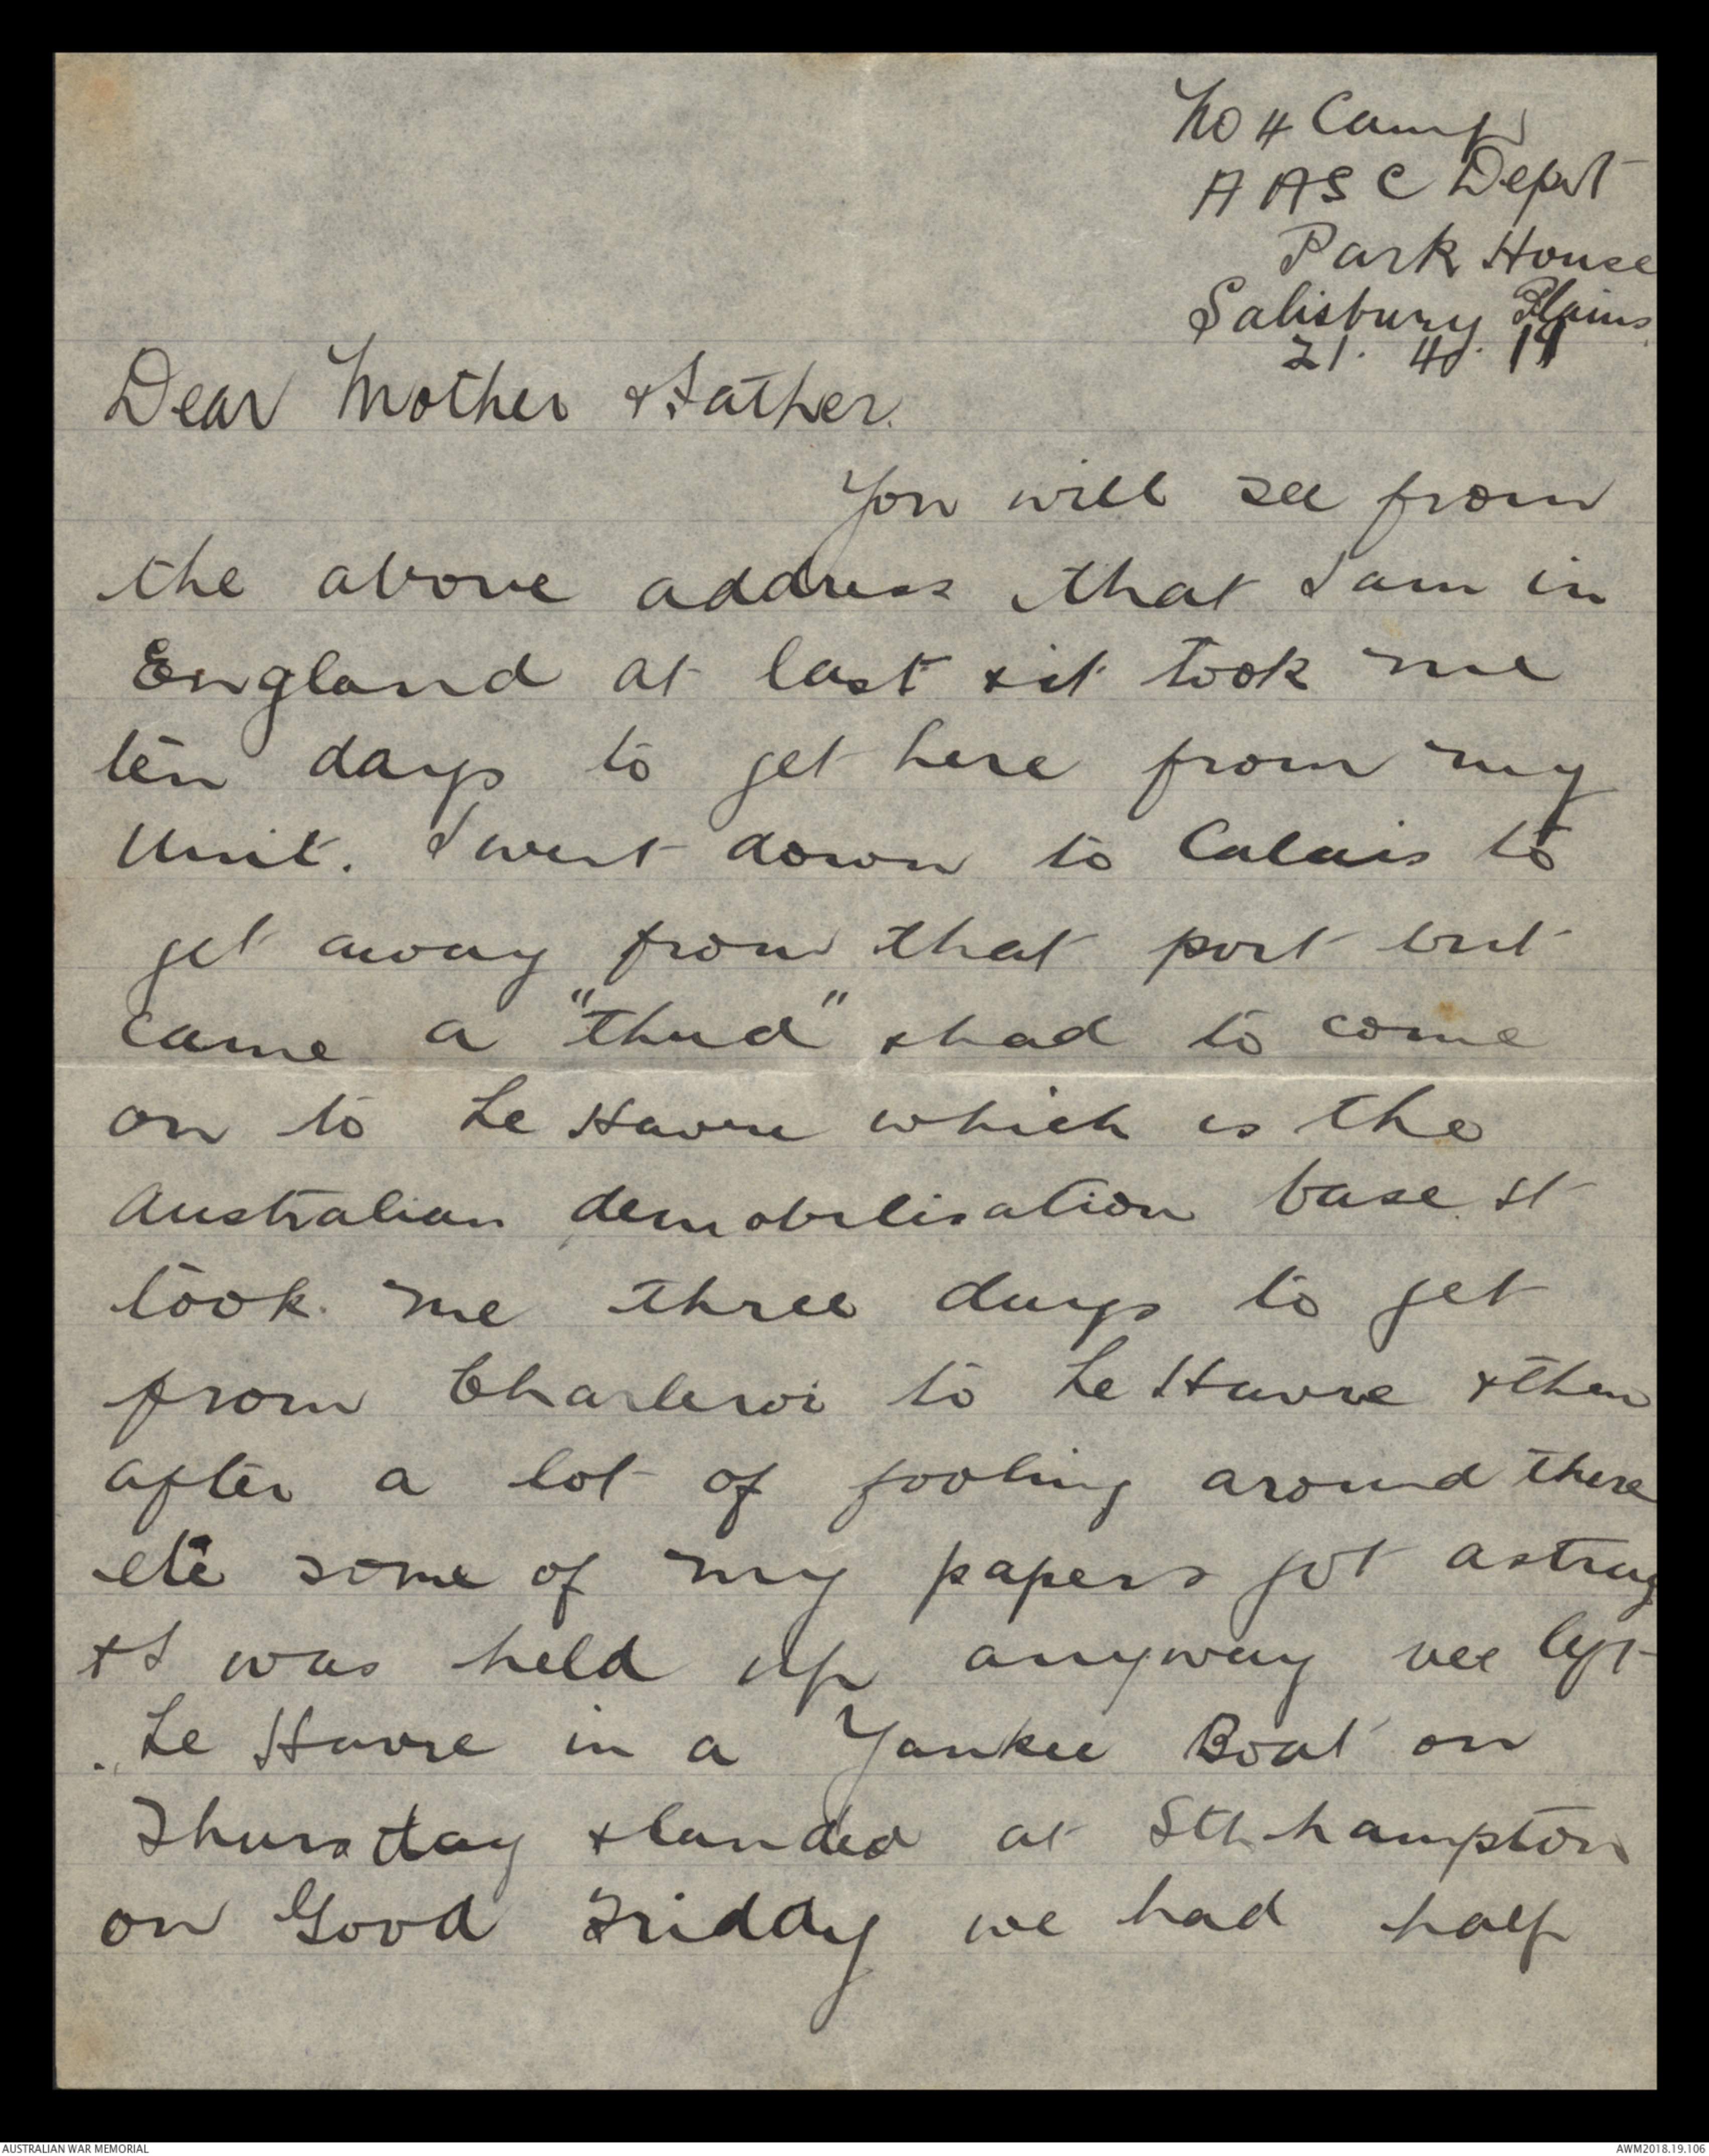 No 4 Camp
A A S C Depot
Park House
Salisbury Plains
21. 4. 19
Dear Mother & Father.
You will see from
the above address that I am in
England at last & it took me
ten days to get here from my
Unit. I went down to Calais to
get away from that port but
came a "thud" & had to come
on to Le Havre which is the
Australian demobilisation base. It
took me three days to get
from Charleroi to Le Havre & then
after a lot of fooling around there
etc some of my papers got astray
& I was held up anyway we left
Le Havre in a Yankee Boat on
Thursday & landed at Sthhampton
on Good Friday we had half
AUSTRALIAN WAR MEMORIAL
AWM2018.19.106